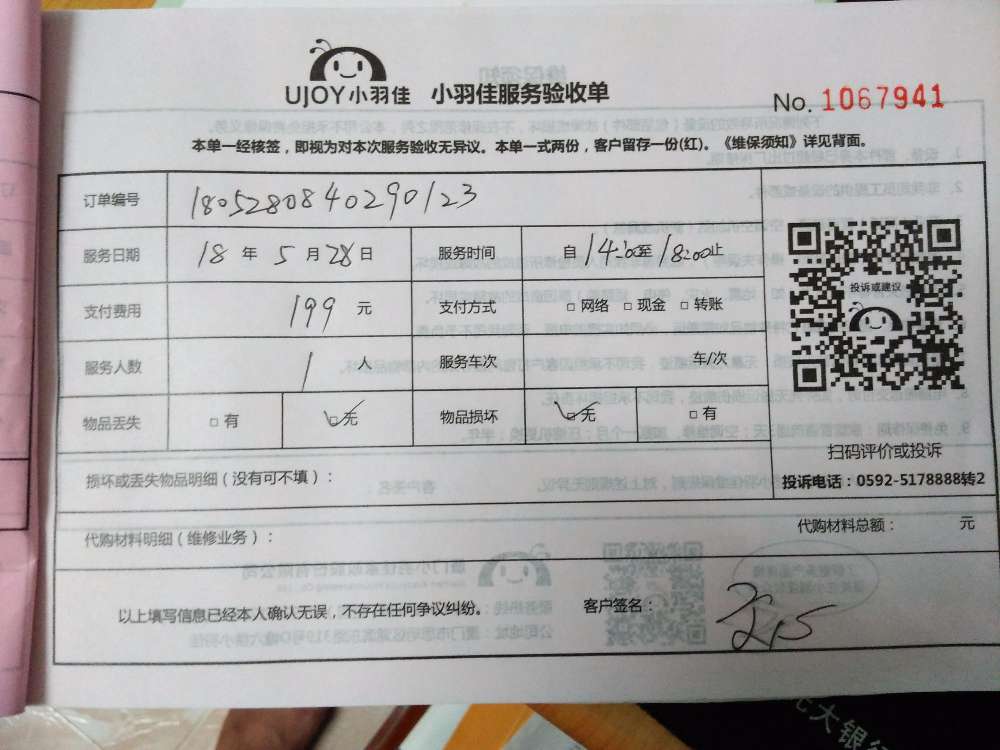 UJOY小羽佳 小羽佳服务验收单
No. 1067941
本单一经核签，即视为对本次服务验收无异议。本单一式两份，客户留存一份(红)。《维保须知》详见背面。
订单编号 1805280840290123
服务日期 18 年 5 月 28 日 服务时间 自 14:00至 18:00止
支付费用 199 元 支付方式 □ 网络 □ 现金 □ 转账
服务人数 1 人 服务车次 车/次
物品丢失 □ 有 ☑ 无 物品损坏 ☑ 无 □ 有
投诉或建议
扫码评价或投诉
投诉电话：0592-5178888转2
损坏或丢失物品明细（没有可不填）：
代购材料明细（维修业务）： 代购材料总额： 元
以上填写信息已经本人确认无误，不存在任何争议纠纷。 客户签名：
大银